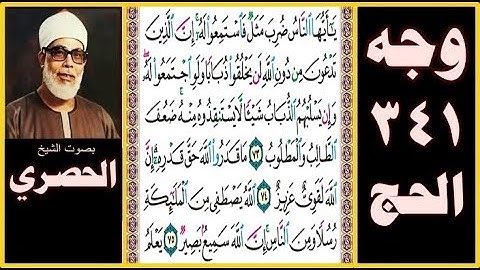 وجه
٣٤١
الحج
يَٰٓأَيُّهَا ٱلنَّاسُ ضُرِبَ مَثَلٞ فَٱسۡتَمِعُواْ لَهُۥٓۚ إِنَّ ٱلَّذِينَ
تَدۡعُونَ مِن دُونِ ٱللَّهِ لَن يَخۡلُقُواْ ذُبَابٗا وَلَوِ ٱجۡتَمَعُواْ لَهُۥۖ
وَإِن يَسۡلُبۡهُمُ ٱلذُّبَابُ شَيۡـٔٗا لَّا يَسۡتَنقِذُوهُ مِنۡهُۚ ضَعُفَ
ٱلطَّالِبُ وَٱلۡمَطۡلُوبُ ٧٣ مَا قَدَرُواْ ٱللَّهَ حَقَّ قَدۡرِهِۦٓۚ إِنَّ
ٱللَّهَ لَقَوِيٌّ عَزِيزٌ ٧٤ ٱللَّهُ يَصۡطَفِي مِنَ ٱلۡمَلَٰٓئِكَةِ
رُسُلٗا وَمِنَ ٱلنَّاسِۚ إِنَّ ٱللَّهَ سَمِيعُۢ بَصِيرٞ ٧٥ يَعۡلَمُ
بصوت الشيخ
الحصري